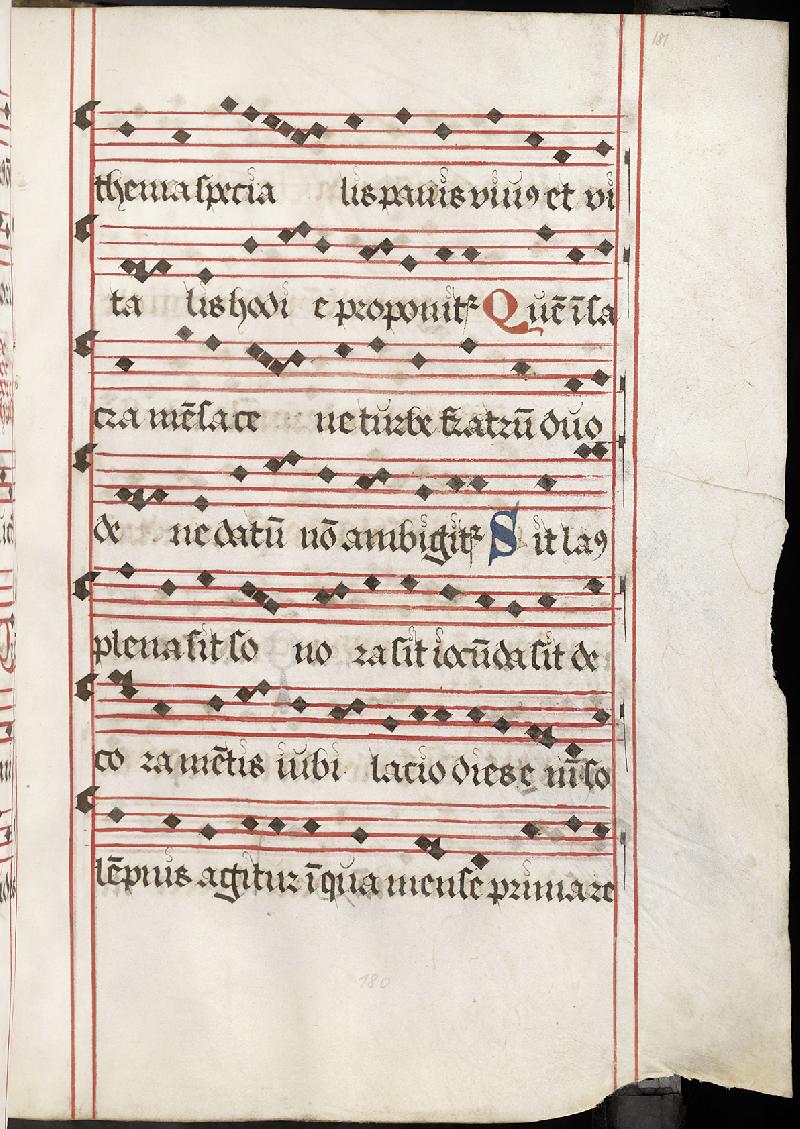 181
thema specia lis panis viuꝰ et vi
ta lis hodi e proponitꝛ Quē ī sa
cra mēsa ce ne turbe fratrū duo
de ne datū nō ambigitꝛ Sit laꝰ
plena sit so no ra sit iocūda sit de
co ra mētis iubi lacio dies e nī so
lēpnis agitur ī qua mense prima re
180